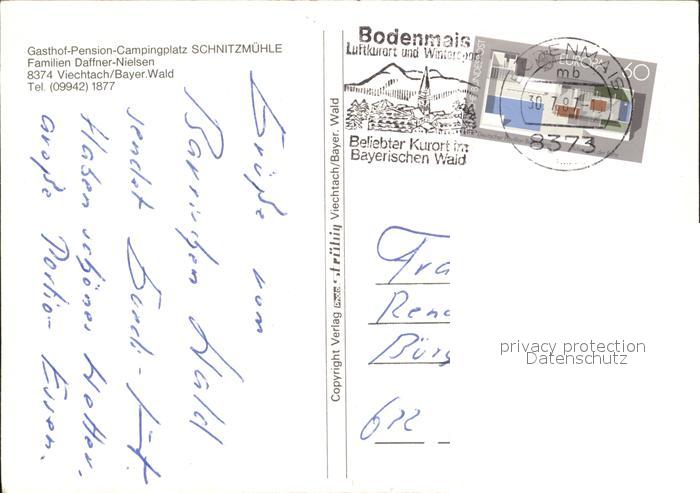 Gasthof-Pension-Campingplatz SCHNITZMÜHLE
Familien Daffner-Nielsen
8374 Viechtach/Bayer.Wald
Tel. (09942) 1877
Grüße vom
Wald
sendet
Haben schönes Wetter.
große Portion Essen.
Copyright Verlag Viechtach/Bayer. Wald
Bodenmais
Luftkurort und Wintersport
Beliebter Kurort im
Bayerischen Wald
mb
8373
EUROPA
60
Fra
Rena
Bürg
622
privacy protection
Datenschutz